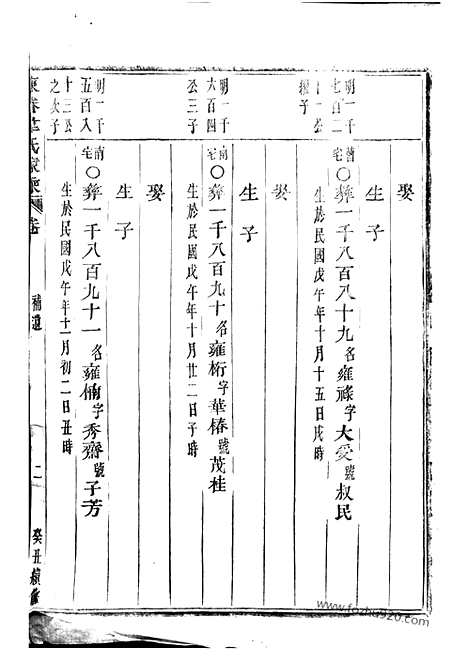 明一千
七百二
十一公
繼子
舊宅○彝一千八百八十九名雍祿字大受號叔民
生於民國戊午年十月十五日戌時
娶
生子
明一千
六百四
公三子
南宅○彝一千八百九十名雍桁字華椿號茂桂
生於民國戊午年十月廿二日子時
娶
生子
明一千
五百八
十三公
之次子
南宅○彝一千八百九十一名雍侕字秀齋號子芳
生於民國戊午年十一月初二日丑時
娶
生子
氏家乘
補遺
二
癸丑續修
www.fozhu920.com